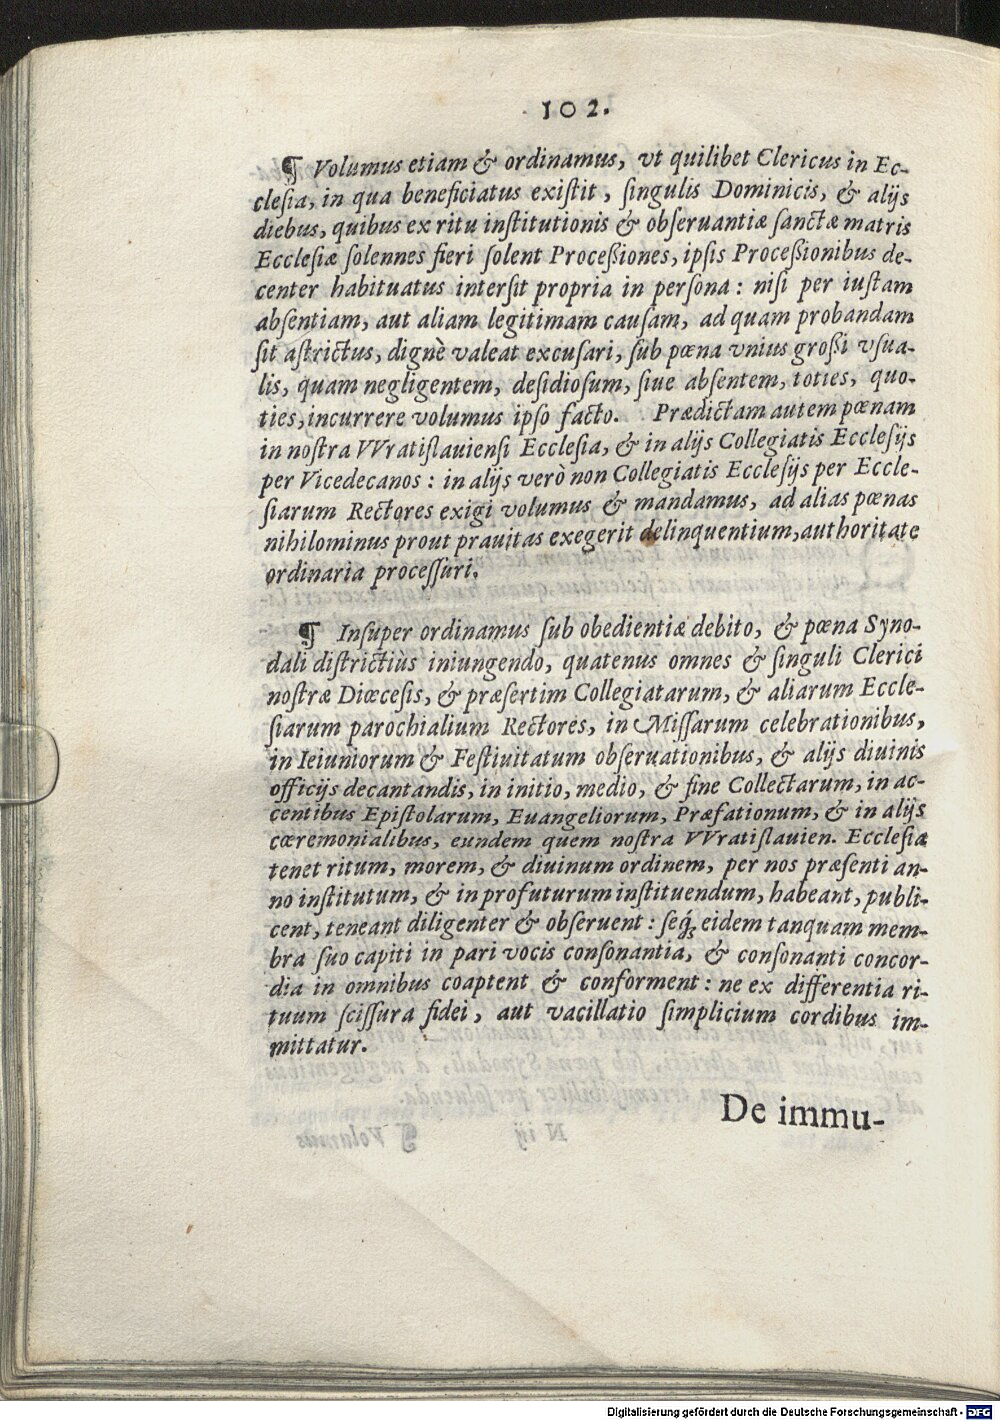 102.
¶ Volumus etiam & ordinamus, vt quilibet Clericus in Ec-
clesia, in qua beneficiatus existit, singulis Dominicis, & alijs
diebus, quibus ex ritu institutionis & obseruantiæ sanctæ matris
Ecclesiæ solennes fieri solent Processiones, ipsis Processionibus de-
center habituatus intersit propria in persona: nisi per iustam
absentiam, aut aliam legitimam causam, ad quam probandam
sit astrictus, dignè valeat excusari, sub pœna vnius grossi vsua-
lis, quam negligentem, desidiosum, siue absentem, toties, quo-
ties, incurrere volumus ipso facto. Prædictam autem pœnam
in nostra VVratislauiensi Ecclesia, & in alijs Collegiatis Ecclesijs
per Vicedecanos: in alijs verò non Collegiatis Ecclesijs per Eccle-
siarum Rectores exigi volumus & mandamus, ad alias pœnas
nihilominus prout prauitas exegerit delinquentium, authoritate
ordinaria processuri.
¶ Insuper ordinamus sub obedientiæ debito, & pœna Syno-
dali districtiùs iniungendo, quatenus omnes & singuli Clerici
nostræ Diœcesis, & præsertim Collegiatarum, & aliarum Eccle-
siarum parochialium Rectores, in Missarum celebrationibus,
in Ieiuniorum & Festiuitatum obseruationibus, & alijs diuinis
officijs decantandis, in initio, medio, & fine Collectarum, in ac-
centibus Epistolarum, Euangeliorum, Præfationum, & in alijs
cæremonialibus, eundem quem nostra VVratislauien. Ecclesia
tenet ritum, morem, & diuinum ordinem, per nos præsenti an-
no institutum, & in profuturum instituendum, habeant, publi-
cent, teneant diligenter & obseruent: seq́; eidem tanquam mem-
bra suo capiti in pari vocis consonantia, & consonanti concor-
dia in omnibus coaptent & conforment: ne ex differentia ri-
tuum scissura fidei, aut vacillatio simplicium cordibus im-
mittatur.
De immu-
Digitalisierung gefördert durch die Deutsche Forschungsgemeinschaft - DFG